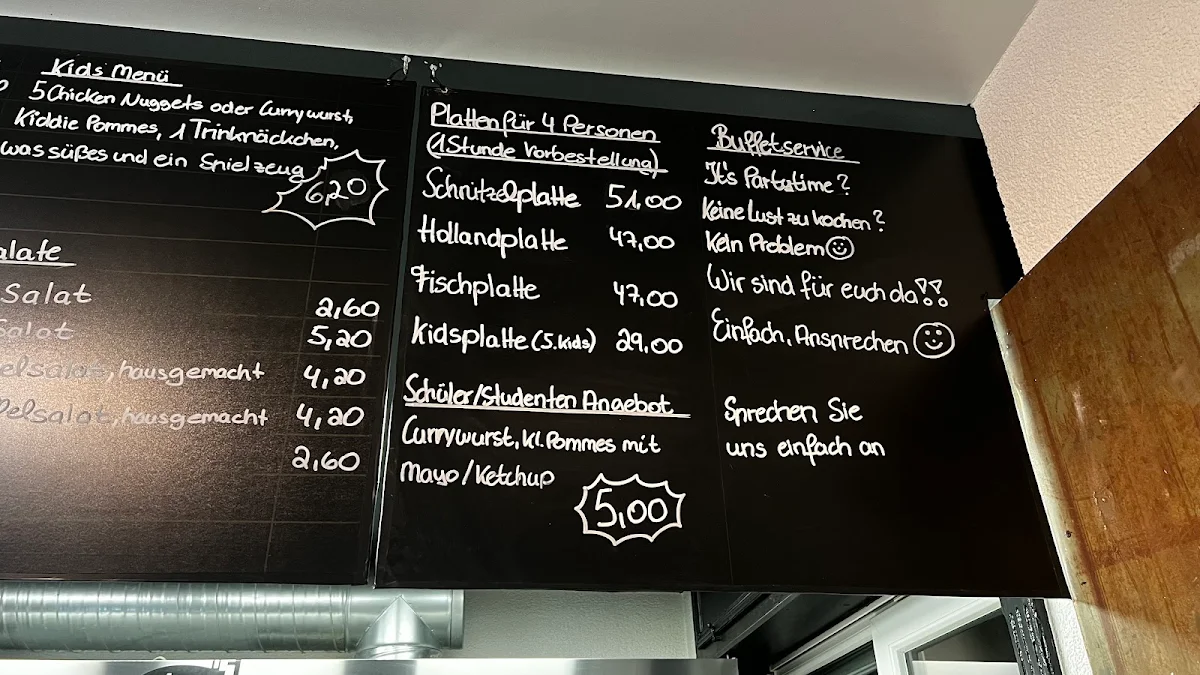 Kids Menü
5 Chicken Nuggets oder Currywurst,
Kiddie Pommes, 1 Trinkpäckchen,
was süßes und ein Spielzeug
6,20
Salat 2,60
Salat 5,20
hausgemacht 4,20
hausgemacht 4,20
2,60
Platten für 4 Personen
(1 Stunde Vorbestellung)
Schnitzelplatte 51,00
Hollandplatte 47,00
Fischplatte 47,00
Kidsplatte (5.Kids) 29,00
Schüler/Studenten Angebot
Currywurst, Kl. Pommes mit
Mayo/Ketchup
5,00
Buffetservice
It's Partytime?
Keine Lust zu kochen?
Kein Problem
Wir sind für euch da!!
Einfach, Ansprechen
Sprechen Sie
uns einfach an